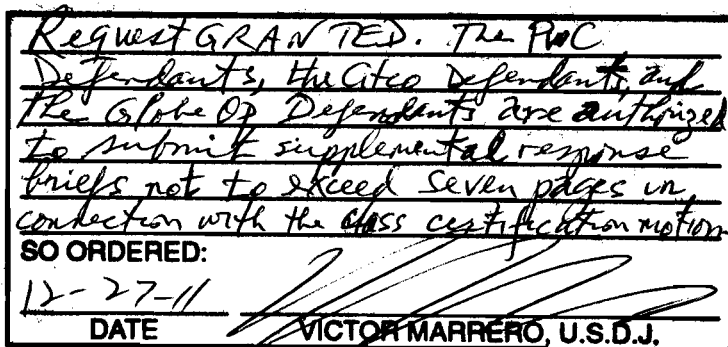 Request GRANTED. The PwC
Defendants, the Citco Defendants, and
the GlobeOp Defendants are authorized
to submit supplemental response
briefs not to exceed seven pages in
connection with the class certification motion.
SO ORDERED:
12-27-11
DATE VICTOR MARRERO, U.S.D.J.